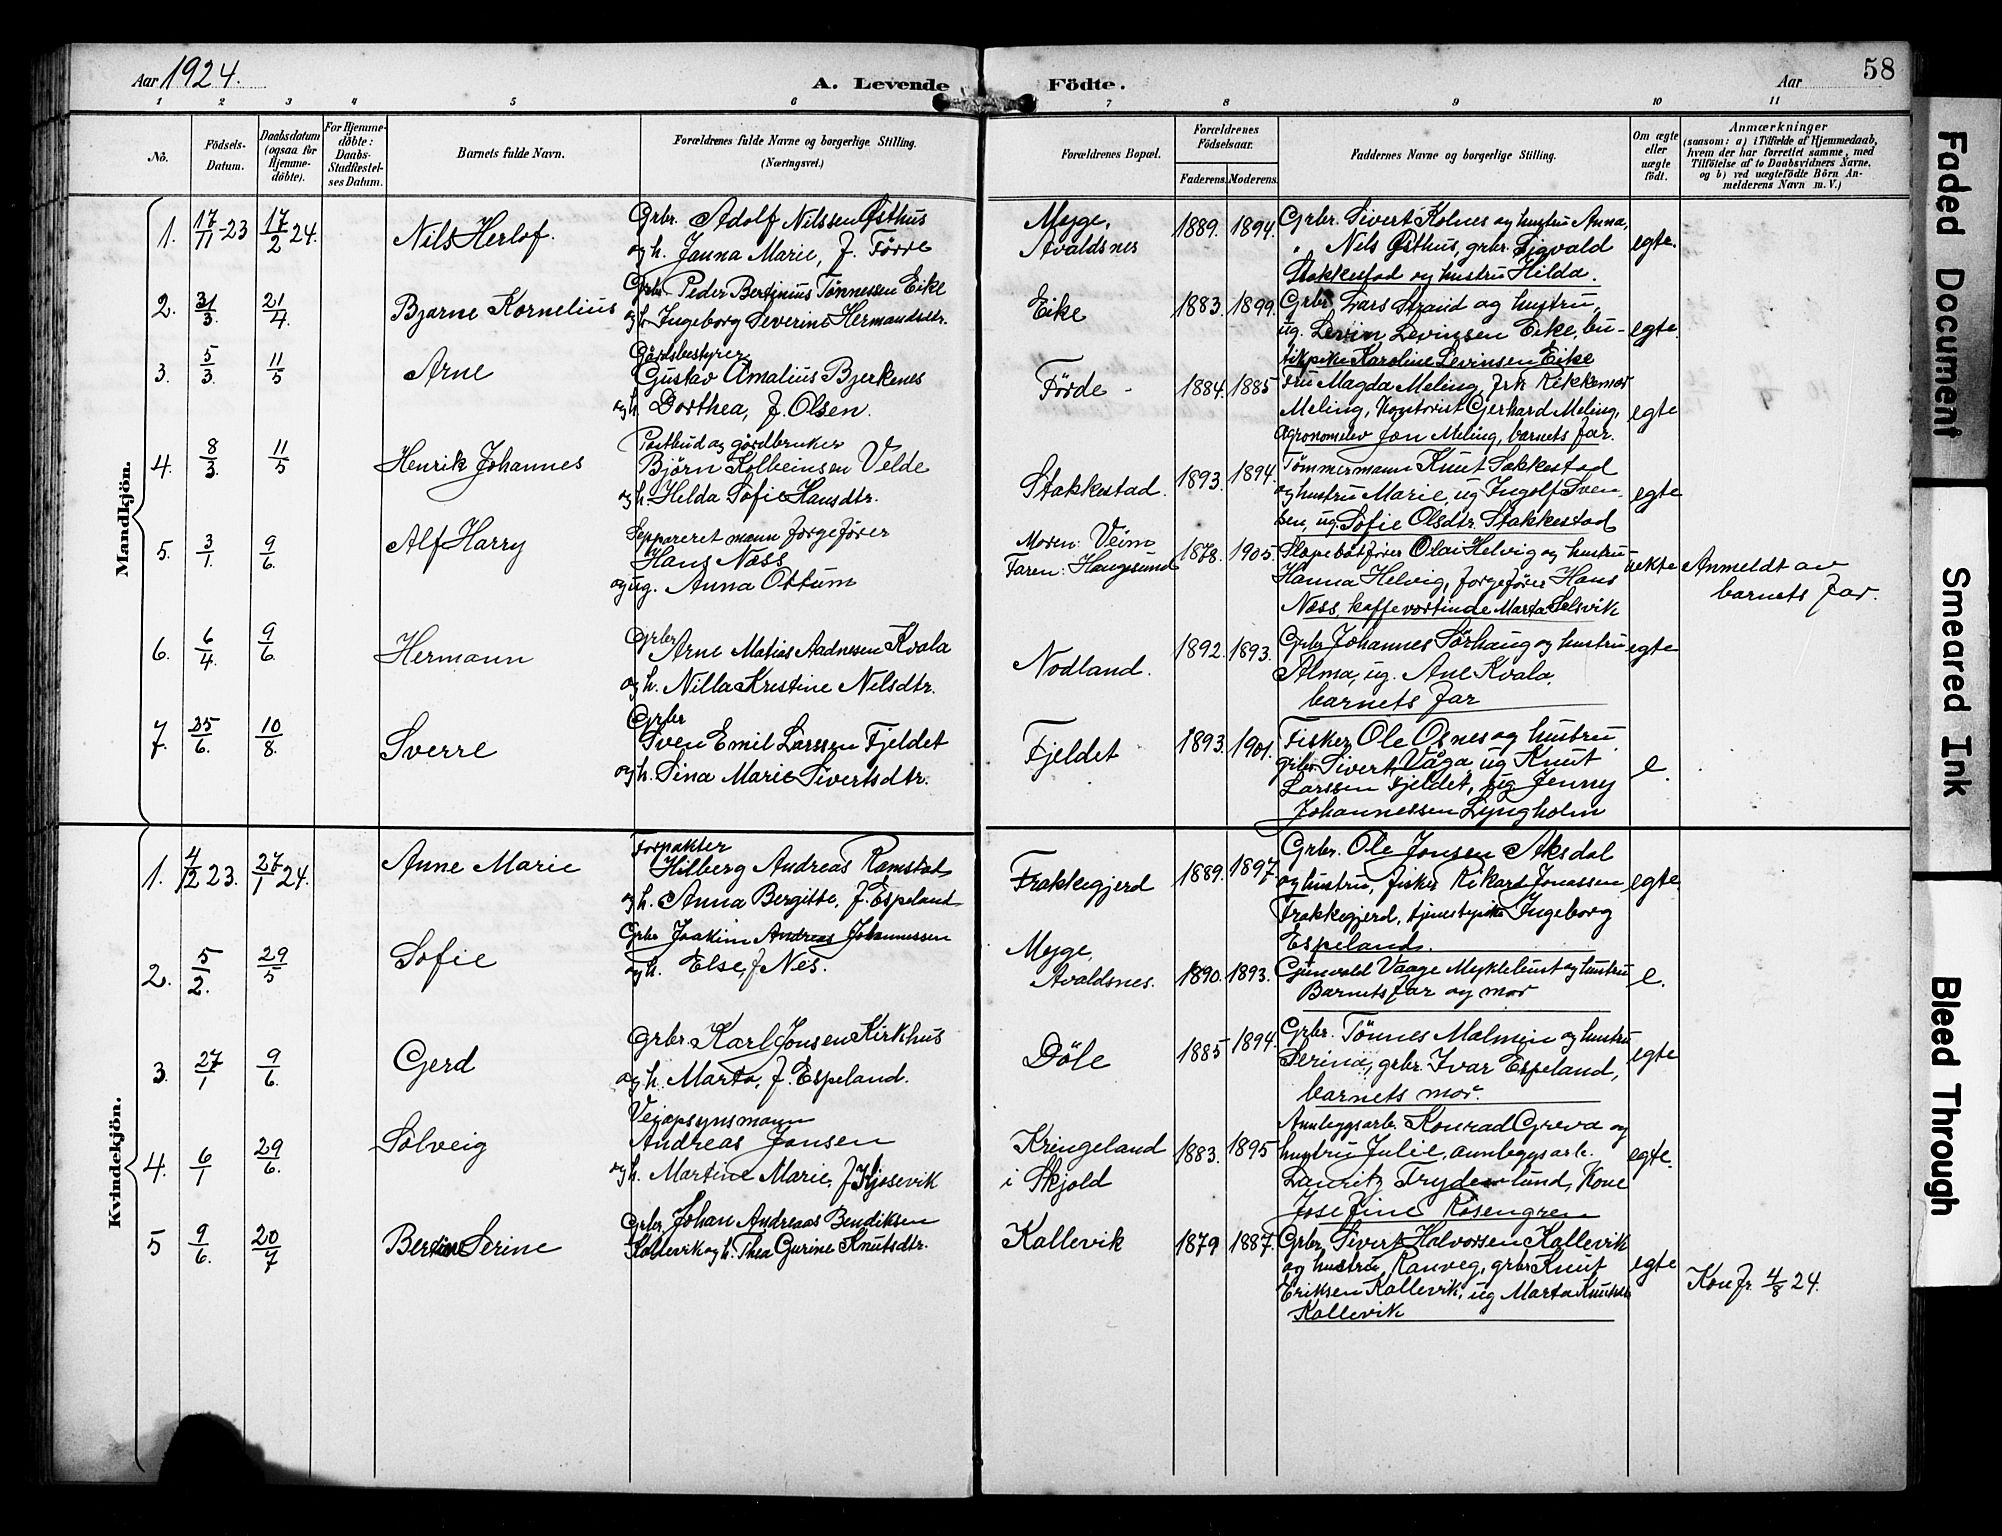 Aar 1924.
A. Levende
Födte.
Aar
58
1 2 3 4 5 6 7 8 9 10 11
No.
Födsels-Datum.
Daabsdatum (ogsaa for Hjemme-döbte).
For Hjemme-döbte: Daabs-Stadfæstel-ses Datum.
Barnets fulde Navn.
Forældrenes fulde Navne og borgerlige Stilling.
(Næringsvei.)
Forældrenes Bopæl.
Forældrenes Födselsaar.
Faderens.
Moderens.
Faddernes Navne og borgerlige Stilling.
Om ægte eller uægte födt.
Anmærkninger
(saasom: a) i Tilfælde af Hjemmedaab,
hvem der har forrettet samme, med
Tilföielse af to Daabsvidners Navne,
og b) ved uægtefödte Börn An-
melderens Navn m. V.)
Mandkjön.
1. 17/11-23 17/2 24. Nils Herlof.
Grbr. Adolf Nilssen Østhus
og h. Janna Marie, f. Førre
Myge, Avaldsnes
1889. 1894.
Grbr. Sivert Kolnes og hustru Anna,
" Nils Østhus, grbr. Sigvald
Stakkestad og hustru Hilda.
egte.
2. 31/3. 21/4. Bjarne Kornelius
Grbr. Peder Bertinius Tønnessen Eike
og h. Ingeborg Severine Hermandsdtr.
Eike
1883. 1899.
Grbr. Lars Strand og hustru,
ug. Levin Levinsen Eike, bu-
tikpike Karoline Levinsen Eike
egte.
3. 5/3. 11/5 Arne
Gårdsbestyrer
Gustav Amalius Bjerkenes
og h. Dorthea, f. Olsen.
Førde
1884. 1885
Fru Magda Meling, frk Rikkemor
Meling, Kontorist Gerhard Meling,
Agronomelev Jon Meling, barnets far.
egte
4. 8/3. 11/5 Henrik Johannes
Postbud og gårdbruker
Bjørn Kolbeinsen Velde
og h. Helda Sofie Hansdtr.
Stakkestad.
1893. 1894.
Tømmermann Knut Sakkestad
og hustru Marie, ug Ingolf Sven
sen, ug. Sofie Olsdtr. Stakkestad
egte
5. 3/1. 9/6. Alf Harry
Seppareret mann forgefører
Hans Næss
og ug. Anna Ottum
Moren: Veim
Faren: Haugesund
1878. 1905.
Slæpebåtfører Olai Helvig og hustru
Hanna Helvig, forgefører Hans
Næss, kaffevertinde Marta Selsvik
uekte
Anmeldt av
barnets far.
6. 6/4. 9/6. Hermann
Grbr
Arne Matias Aadnesen Kvala
og h. Nilla Kristine Nilsdtr.
Nodland.
1892. 1893.
Grbr. Johannes Sørhaug og hustru
Alma, ug. Ane Kvala,
barnets far
egte
7. 25/6. 10/8. Sverre
Grbr
Sven Emil Larssen Fjeldet
og h. Sina Marie Sivertsdtr.
Fjeldet
1893. 1901.
Fisker Ole Osnes og hustru
grbr. Sivert Våga, ug Knut
Larssen Fjeldet, ug Jenny
Johannessen Lyngholm
e.
Kvindekjön.
1. 4/12 23. 27/1 24. Anne Marie
Forpakter
Hilberg Andreas Ramstad
og h. Anna Bergitte, f. Espeland
Frakkegjerd
1889. 1897
Grbr. Ole Jonsen Aksdal
og hustru, fisker Rikard Jonassen
Frakkegjerd, tjenestepike Ingeborg
Espeland.
egte
2. 5/2. 29/5 Sofie
Grbr Joakim Andreas Johannessen
og h. Else, f Nes.
Myge, Avaldsnes.
1890. 1893.
Gunvald Vaage Myklebust og hustru
Barnets far og mor
e.
3. 27/1 9/6. Gerd
Grbr Karl Jonsen Kirkhus
og h. Marta, f. Espeland.
Döle
1885 1894.
Grbr. Tønnes Malmin og hustru
Serina, grbr. Ivar Espeland,
barnets mor.
egte
4. 6/1 29/6. Solveig
Veiopsynsmann
Andreas Jansen
og h. Martine Marie, f Kjosevik
Kringeland
i Skjold
1883. 1895
Annleggsarb. Konrad Greva og
hustru Julie, annleggsarb.
Lauritz Frydenlund, Kone
Josefine Rosengren
egte.
5 9/6. 20/7 Bertine Serine
Grbr. Johan Andreas Bendiksen
Kallevik og h. Thea Gurine Knutsdtr.
Kallevik
1879 1887.
Grbr. Sivert Halvorsen Kallevik
og hustru Ranveg, grbr Knut
Eriksen Kallevik, ug Marta Knutsd
Kallevik
egte
Konfr. 4/8 24.
Faded Document
Smeared Ink
Bleed Through